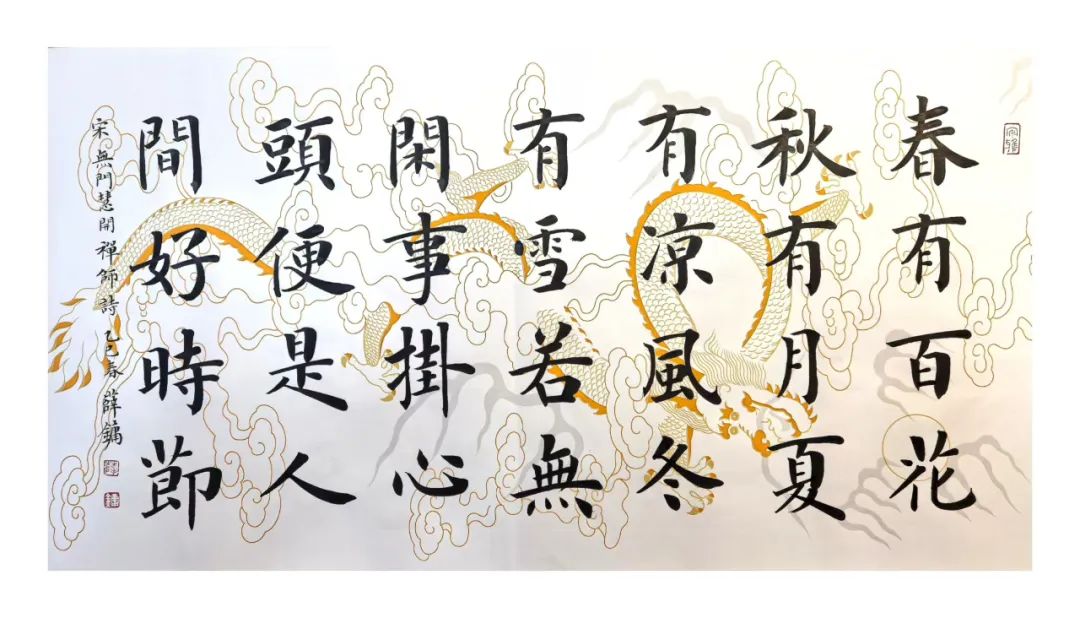 春有百花
秋有月夏
有凉風冬
有雪若無
閑事掛心
頭便是人
間好時節
宋無門慧開禪師詩乙巳春薛鏑